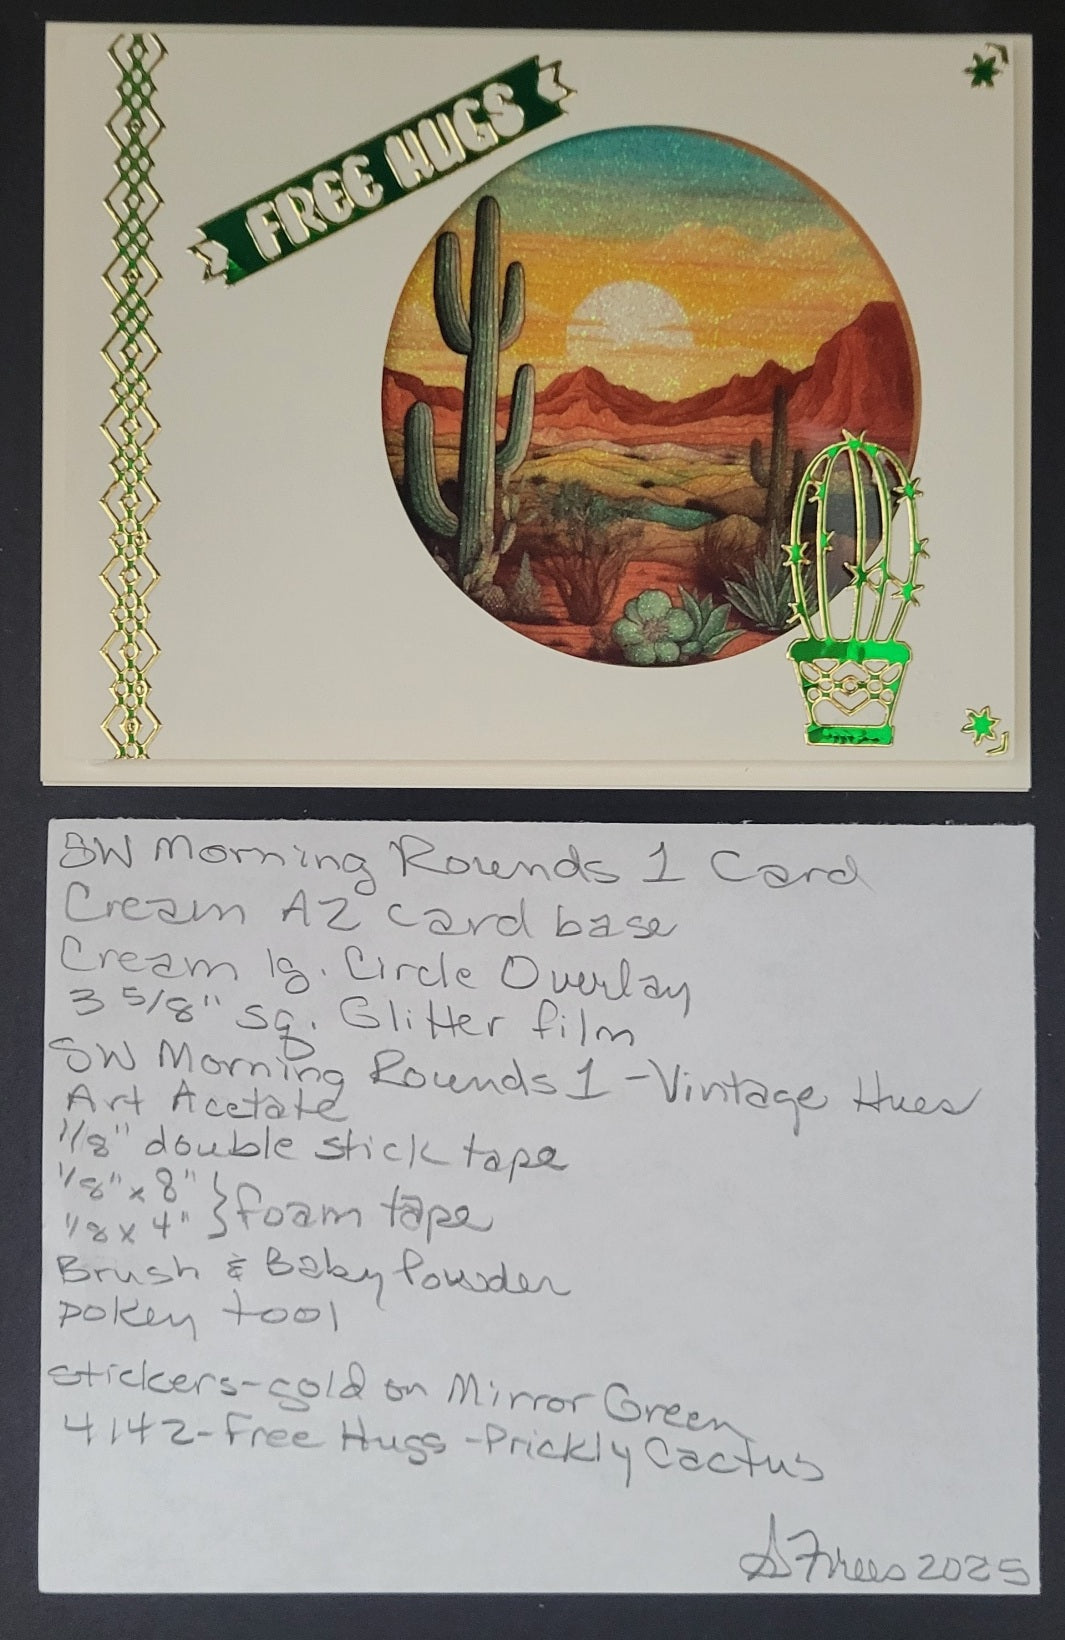 FREE HUGS
SW Morning Rounds 1 Card
Cream A2 card base
Cream lg. Circle Overlay
3 5/8" sq. Glitter film
SW Morning Rounds 1 - Vintage Hues
Art Acetate
1/8" double stick tape
1/8" x 8" } foam tape
1/8 x 4"
Brush & Baby Powder
pokey tool
stickers - gold on Mirror Green
4142 - Free Hugs - Prickly Cactus
S Frees 2025